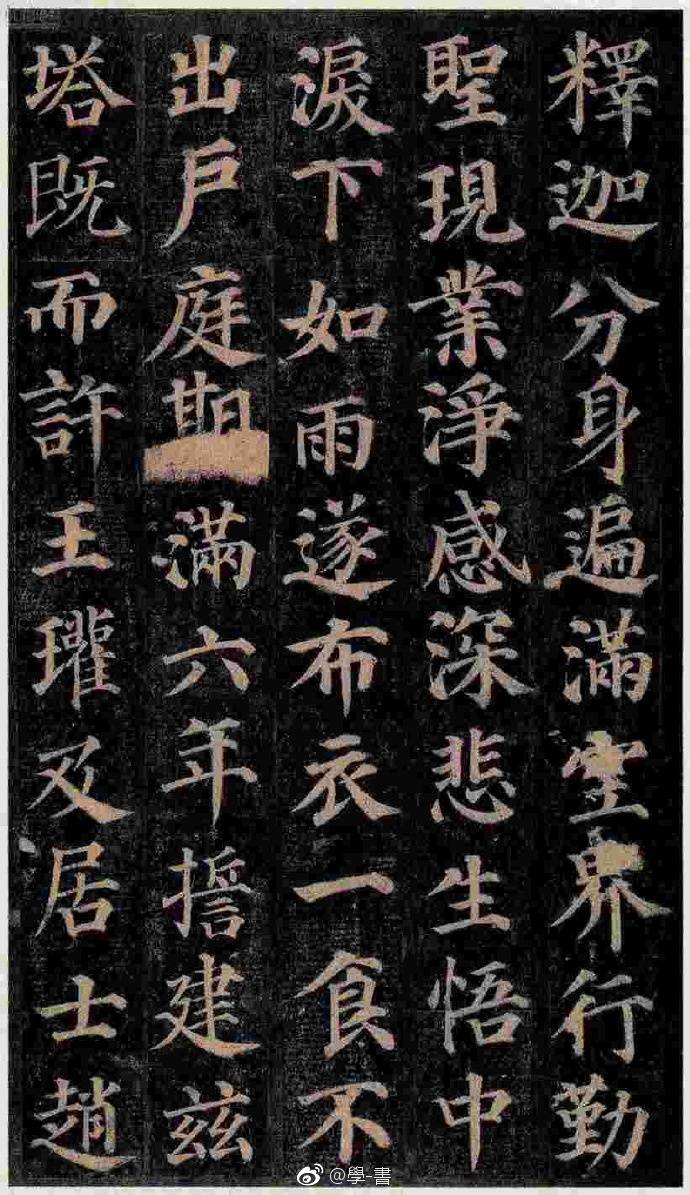 釋迦分身遍滿空界行勤
聖現業淨感深悲生悟中
淚下如雨遂布衣一食不
出戶庭期滿六年擔建茲
塔既而許王瓘及居士趙
@學-書